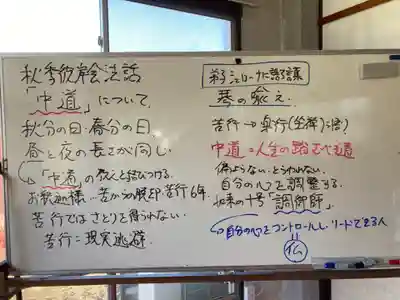 秋季彼岸会法話
「中道」について
秋分の日・春分の日
昼と夜の長さが同じ
「中道」の教えと結びつける。
お釈迦様…苦からの脱却 苦行6年
苦行ではさとりを得られない。
苦行=現実逃避
弟子シュローナに語る講
琴の喩え
苦行→楽行
中道=人生の踏むべき道
偏よらない。とらわれない。
自分の心を調整する。
如来の十号「調御師」
自分の心をコントロールし、リードできる人
仏